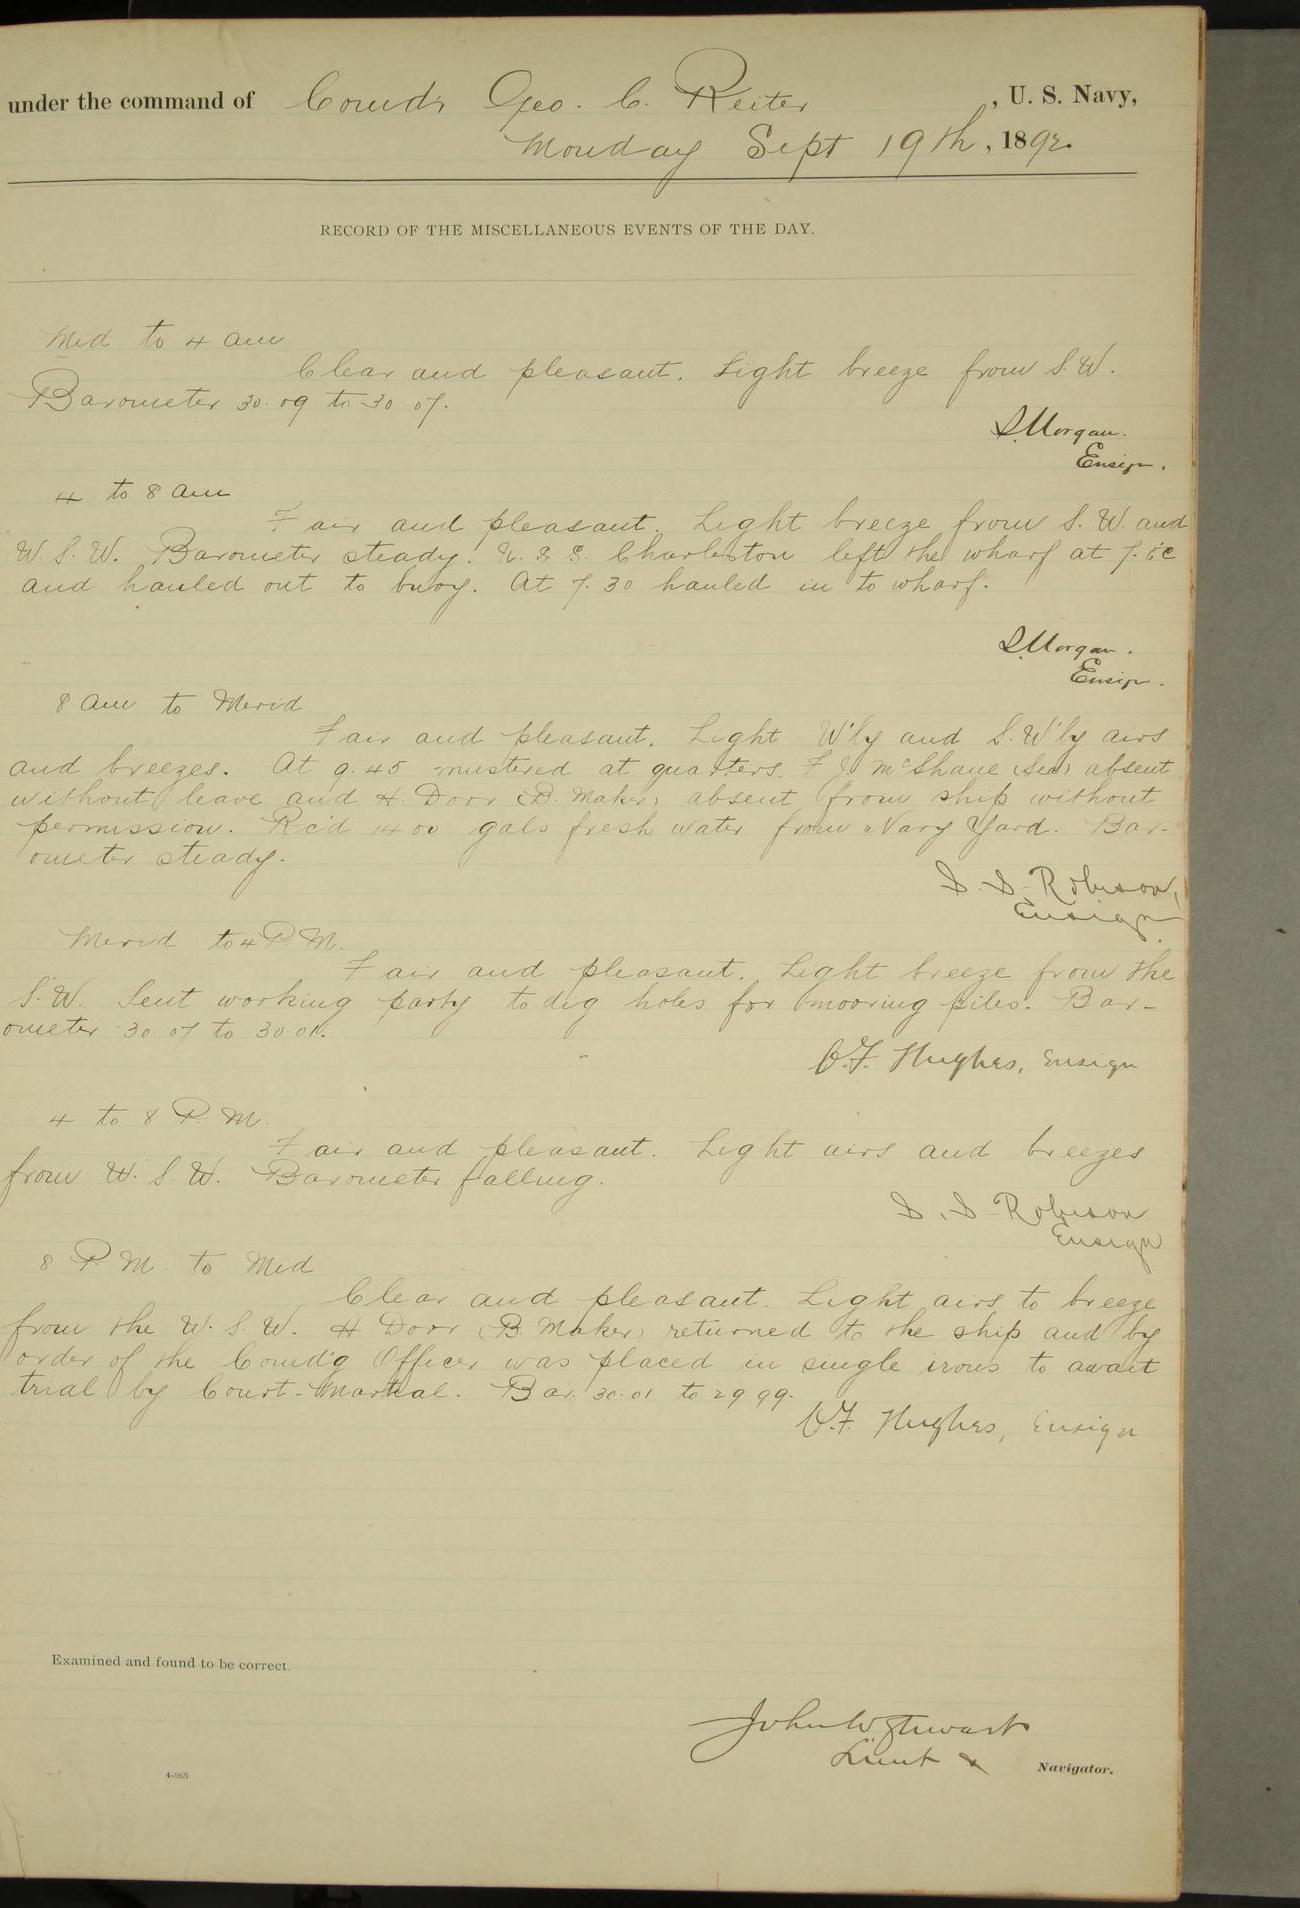 under the command of Comd'r Geo. C. Reiter, U. S. Navy,
Monday Sept 19th, 1892.
RECORD OF THE MISCELLANEOUS EVENTS OF THE DAY.
Mid to 4 am
Clear and pleasant. Light breeze from S.W.
Barometer 30.09 to 30.07.
S. Morgan.
Ensign.
4 to 8 am
Fair and pleasant. Light breeze from S. W. and
W. S. W. Barometer steady. U. S. S. Charleston left the wharf at
and hauled out to buoy. At 7.30 hauled in to wharf.
S. Morgan.
Ensign.
8 am to Merid
Fair and pleasant. Light W'ly and S. W'ly airs
and breezes. At 9.45 mustered at quarters. F. J. McShane (Sea) absent
without leave and H. Dorr (B. Maker) absent from ship without
permission. Rc'd 1400 gals fresh water from Navy Yard. Bar-
ometer steady.
S. S. Robison,
Ensign
Merid to 4 P. M.
Fair and pleasant. Light breeze from the
S.W. Sent working party to dig holes for mooring piles. Bar-
ometer 30.07 to 30.01.
Hughes, Ensign
4 to 8 P. M.
Fair and pleasant. Light airs and breezes
from W. S. W. Barometer falling.
S. S. Robison
Ensign
8 P. M. to Mid
Clear and pleasant. Light airs to breeze
from the W. S. W. H Dorr (B. Maker) returned to the ship and by
order of the Comd'g Officer was placed in single irons to await
trial by Court-Martial. Bar. 30.01 to 29.99.
Hughes, Ensign
Examined and found to be correct.
John W Stewart
Lieut &
Navigator.
4-265